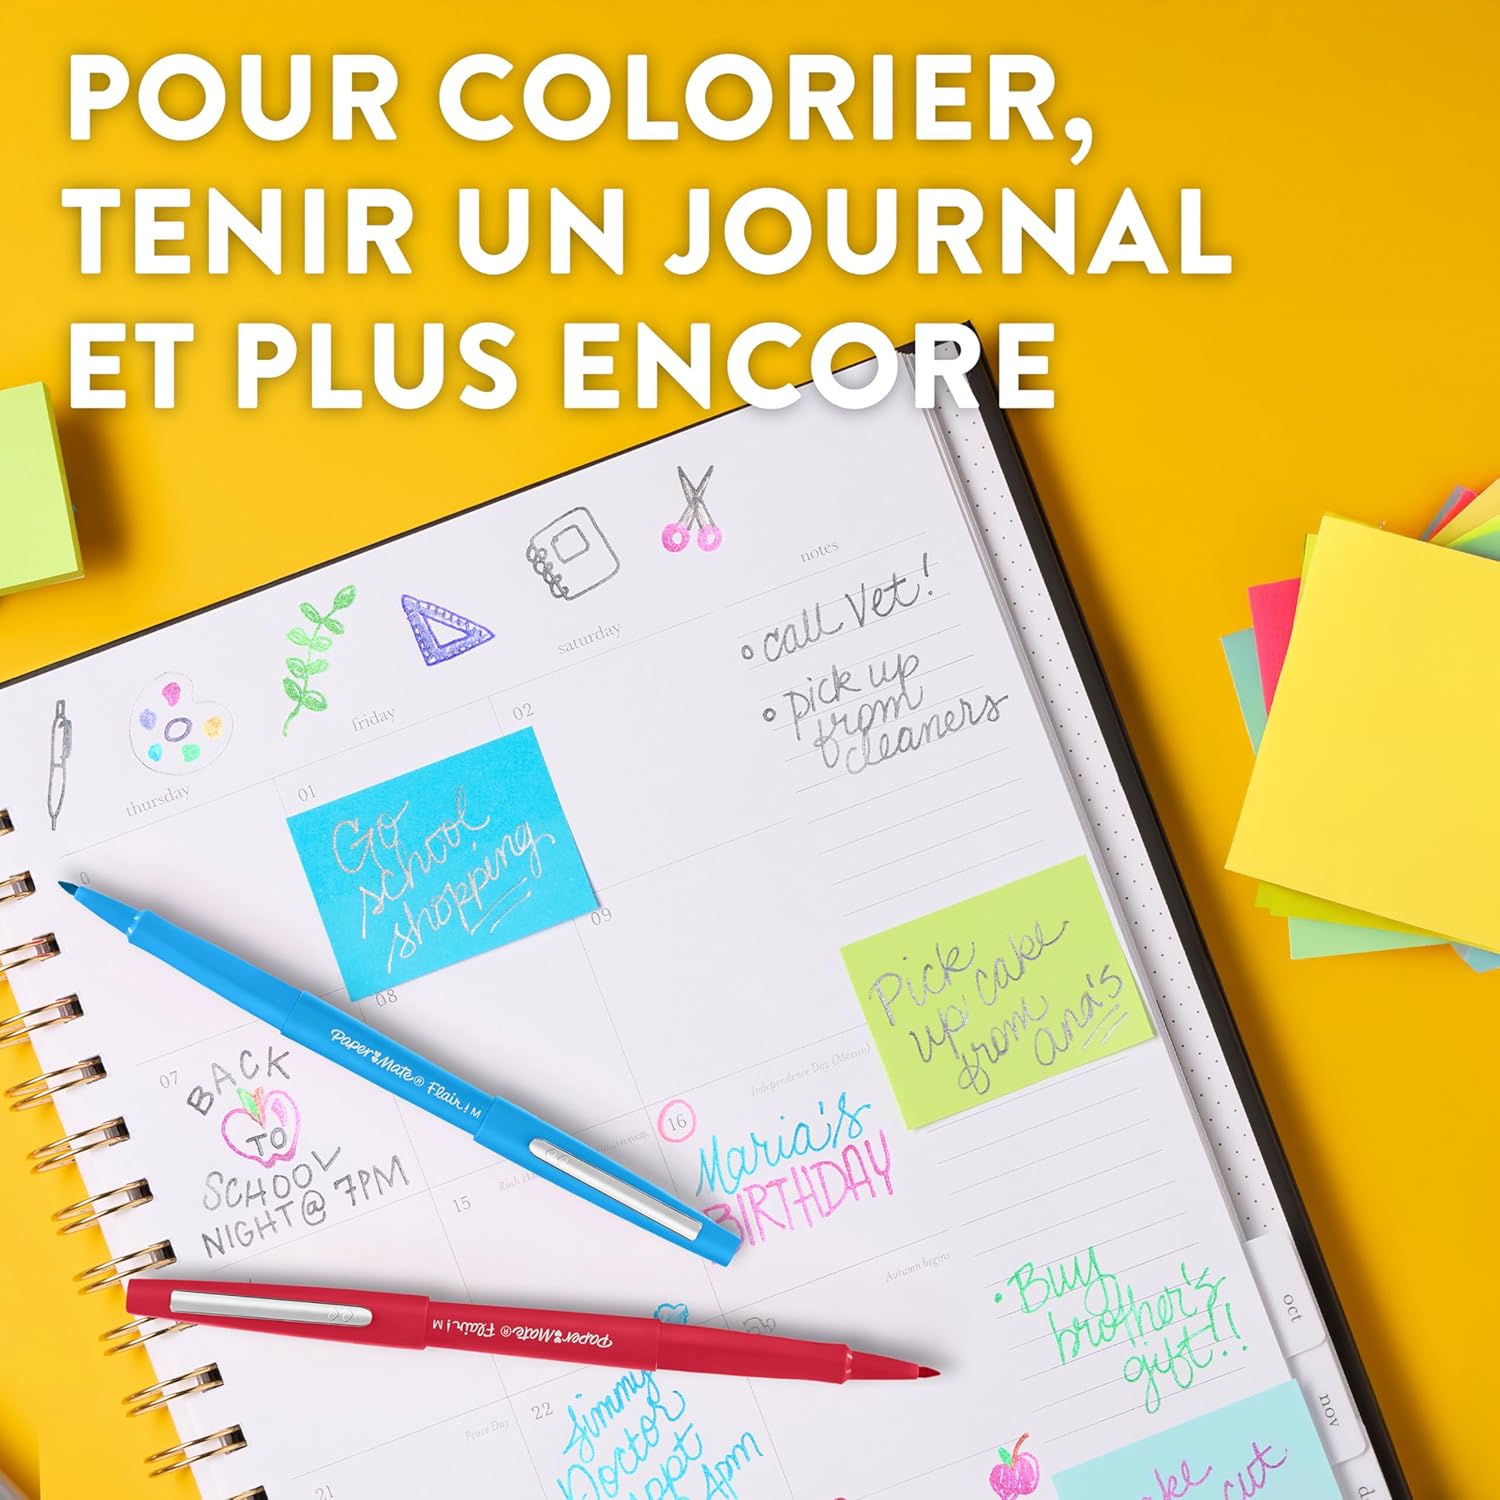 POUR COLORIER,
TENIR UN JOURNAL
ET PLUS ENCORE
notes
• call Vet!
• pick up
from
cleaners
saturday
friday
thursday
02
01
Go
school
shopping
09
08
Pick
up cake
from
ana's
07
BACK
TO
SCHOOL
NIGHT@ 7PM
Paper Mate® Flair! M
Independence Day (Mexico)
16
Maria's
BIRTHDAY
15
Autumn begins
• Buy
brother's
gift!!
oct
nov
Paper Mate® Flair! M
Peace Day
22
Jimmy
Doctor
appt
4pm
21